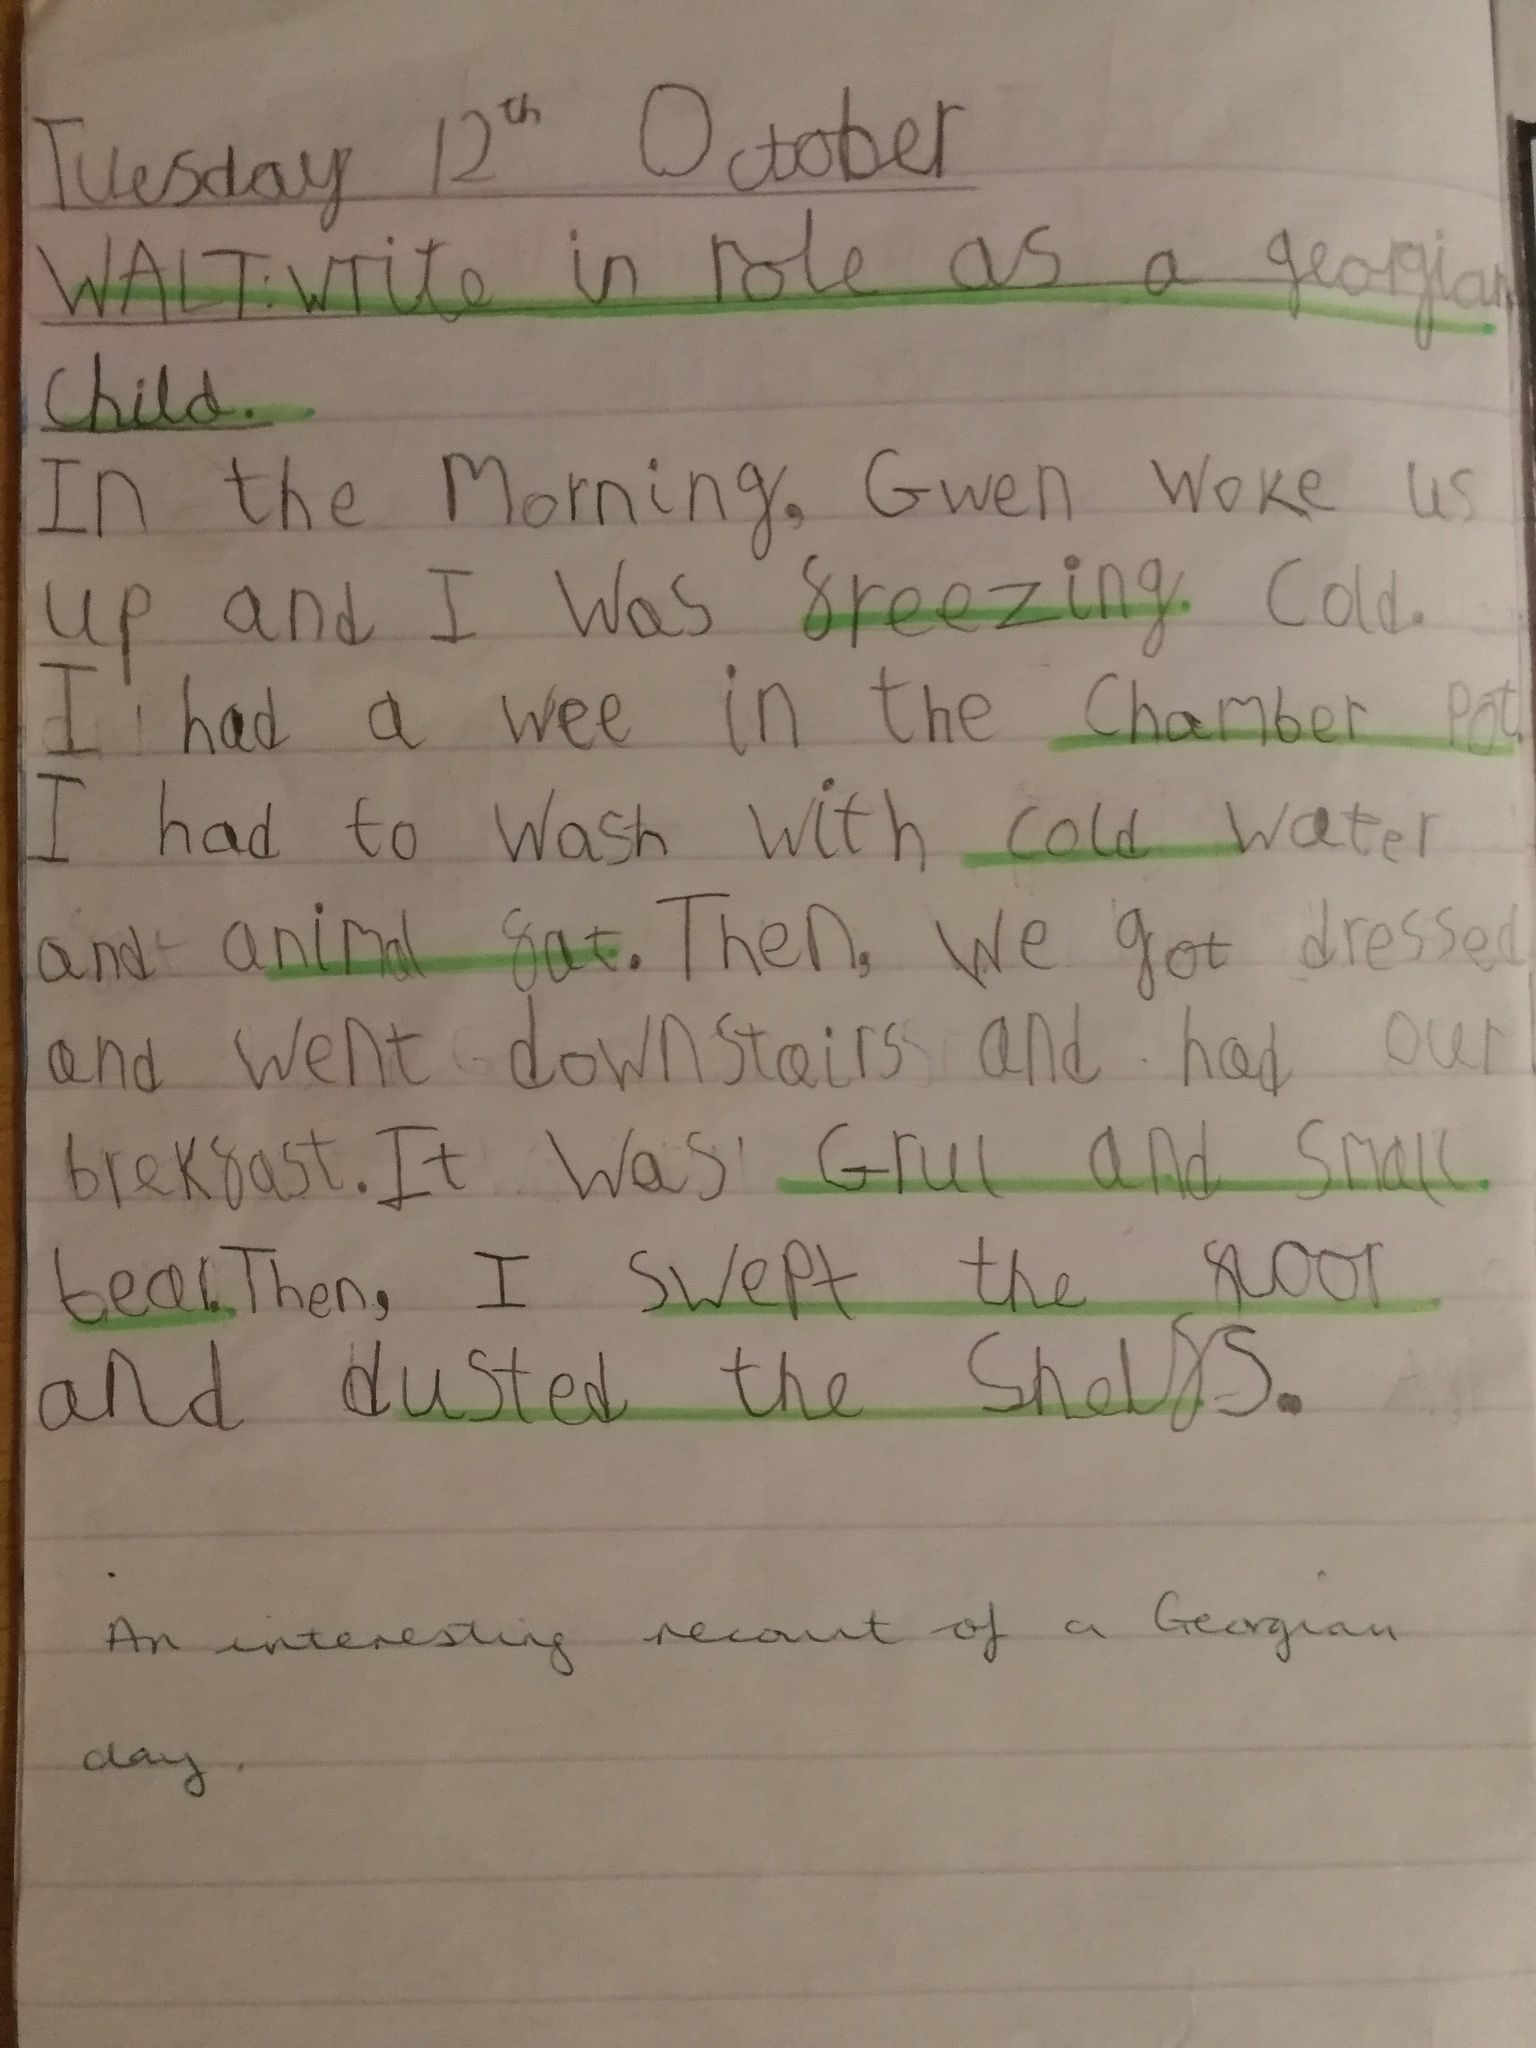 Tuesday 12th October
WALT: write in role as a georgian
child.
In the Morning, Gwen woke us
up and I was freezing cold.
I had a wee in the Chamber Pot.
I had to wash with cold water
and animal fat. Then, we got dressed
and went downstairs and had our
brekfast. It was Gruel and small
bear. Then, I swept the floor
and dusted the shelfs.
An interesting recount of a Georgian
day.